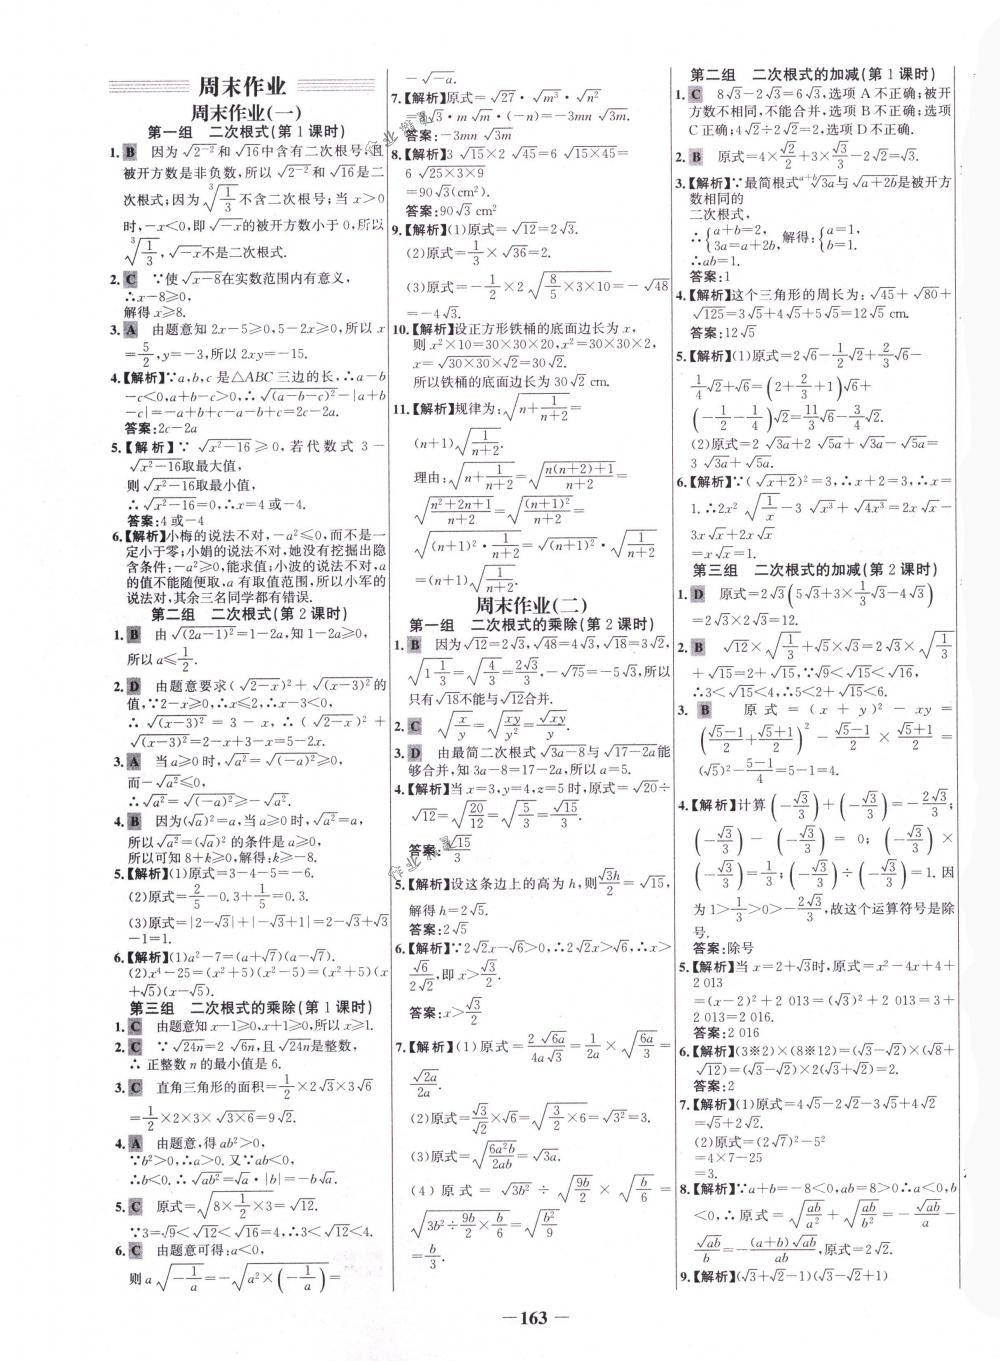 周末作业
周末作业(一)
第一组 二次根式(第1课时)
1. B 因为√2⁻²和√16中含有二次根号,且
被开方数是非负数,所以√2⁻²和√16是二
次根式;因为∛(1/3)不含二次根号;当x>0
时,-x<0,即√-x的被开方数小于0,所以
∛(1/3),√-x不是二次根式.
2. C ∵使√x-8在实数范围内有意义,
∴x-8≥0,
解得x≥8.
3. A 由题意知2x-5≥0,5-2x≥0,所以x
=5/2,y=-3,所以2xy=-15.
4.【解析】∵a,b,c是△ABC三边的长,∴a-b
-c<0,a+b-c>0,∴√(a-b-c)²-|a+b
-c|=-a+b+c-a-b+c=2c-2a.
答案:2c-2a
5.【解析】∵√x²-16≥0,若代数式3-
√x²-16取最大值,
则√x²-16取最小值,
∴√x²-16=0,∴x=4或-4.
答案:4或-4
6.【解析】小梅的说法不对,-a²≤0,而不是一
定小于零;小娟的说法不对,她没有挖掘出隐
含条件:-a²≥0,能求值;小波的说法不对,a
的值不能随便取,a有取值范围,所以小军的
说法对,其余三名同学都有错误.
第二组 二次根式(第2课时)
1. B 由√(2a-1)²=1-2a,知1-2a≥0,
所以a≤1/2.
2. D 由题意要求(√2-x)²+√(x-3)²的
值,∵2-x≥0,∴x≤2,∴x-3<0,
∴√(x-3)²=3-x,∴(√2-x)²+
√(x-3)²=2-x+3-x=5-2x.
3. A 当a≥0时,√a²=√(-a)²≥0,
而-√a²≤0,
∴√a²=√(-a)²≥-√a².
4. B 因为(√a)²=a,当a≥0时,√a²=a,
所以√a²=(√a)²的条件是a≥0,
所以可知8+k≥0,解得:k≥-8.
5.【解析】(1)原式=3-4-5=-6.
(2)原式=2/5-0.3+1/5=0.3.
(3)原式=|2-√3|+|-√3+1|=2-√3+√3
-1=1.
6.【解析】(1)a²-7=(a+√7)(a-√7).
(2)x⁴-25=(x²+5)(x²-5)=(x²+5)(x
+√5)(x-√5).
第三组 二次根式的乘除(第1课时)
1. C 由题意知x-1≥0,x+1≥0,所以x≥1.
2. C ∵√24n=2√6n,且√24n是整数,
∴正整数n的最小值是6.
3. C 直角三角形的面积=1/2×2√3×3√6
=1/2×2×3×√3×6=9√2.
4. A 由题意,得ab²>0,
∵b²>0,∴a>0.又∵ab<0,
∴b<0.∴√ab²=√a·|b|=-b√a.
5. C 原式=√(8×1/2×3)=√12.
∵3=√9<√12<√16=4,∴3<√12<4.
6. C 由题意可得:a<0,
则a√(-1/a)=-√(a²×(-1/a))=
-√-a.
7.【解析】原式=√27·√m³·√n²
=3√3·m√m·(-n)=-3mn√3m.
答案:-3mn√3m
8.【解析】3√15×2√45=6√15×45=
6√25×3×9
=90√3(cm²).
答案:90√3 cm²
9.【解析】(1)原式=√12=2√3.
(2)原式=1/3×√36=2.
(3)原式=-1/2×2√(8/5×3×10)=-√48
=-4√3.
10.【解析】设正方形铁桶的底面边长为x,
则x²×10=30×30×20,x²=30×30×2,
x=√30×30×√2=30√2.
所以铁桶的底面边长为30√2 cm.
11.【解析】规律为:√(n+1/(n+2))=
(n+1)√(1/(n+2)).
理由:√(n+1/(n+2))=√((n(n+2)+1)/(n+2))=
√((n²+2n+1)/(n+2))=√((n+1)²/(n+2))=
√((n+1)²·1/(n+2))=√(n+1)²·√(1/(n+2))
=(n+1)√(1/(n+2)).
周末作业(二)
第一组 二次根式的乘除(第2课时)
1. B 因为√12=2√3,√48=4√3,√18=3√2,
√(1 1/3)=√(4/3)=2√3/3,-√75=-5√3,所以
只有√18不能与√12合并.
2. C √(x/y)=√(xy/y²)=√xy/y.
3. D 由最简二次根式√3a-8与√17-2a能
够合并,知3a-8=17-2a,所以a=5.
4.【解析】当x=3,y=4,z=5时,原式=√20÷
√12=√(20/12)=√(5/3)=√15/3.
答案:√15/3
5.【解析】设这条边上的高为h,则√3h/2=√15,
解得h=2√5.
答案:2√5
6.【解析】∵2√2x-√6>0,∴2√2x>√6,∴x>
√6/2√2,即x>√3/2.
答案:x>√3/2
7.【解析】(1)原式=2√6a/4a√3=1/2a×√(6a/3)=
√2a/2a.
(2)原式=√3/√2×√6=√(3/2×6)=√3²=3.
(3)原式=√(6a²b/2ab)=√3a.
(4)原式=√3b²÷√(9b/2)×√(b/6)=
√(3b²÷9b/2×b/6)=√(b²/9)
=b/3.
第二组 二次根式的加减(第1课时)
1. C 8√3-2√3=6√3,选项A不正确;被开
方数不相同,不能合并,选项B不正确;选项
C正确;4√2÷2√2=2,选项D不正确.
2. B 原式=4×√2/2+3×√3/3-2√2=√3.
3.【解析】∵最简根式ᵃ⁺ᵇ√3a与√a+2b是被开方
数相同的
二次根式,
∴{a+b=2, 3a=a+2b, 解得:{a=1, b=1.
∴ab=1.
答案:1
4.【解析】这个三角形的周长为:√45+√80+
√125=3√5+4√5+5√5=12√5 cm.
答案:12√5
5.【解析】(1)原式=2√6-1/2√2+2/3√6-
1/4√2+√6=(2+2/3+1)√6+
(-1/2-1/4)√2=11/3√6-3/4√2.
(2)原式=2√3a+2√5a+√3a-√5a=
3√3a+√5a.
6.【解析】∵(√x+2)²=3,∴x+2=3,∴x=
1.∴2x²√(1/x)-3√x³+√4x³=2x√x-
3x√x+2x√x
=x√x=1.
第三组 二次根式的加减(第2课时)
1. D 原式=2√3(5√3+3×1/3√3-4√3)
=2√3×2√3=12.
2. B √12×√(1/3)+√5×√3=2√3×√(1/3)
+√15=2+√15,∵√9<√15<√16,
∴3<√15<4,∴5<2+√15<6.
3. B 原式=(x+y)²-xy=
((√5-1)/2+(√5+1)/2)²-(√5-1)/2×(√5+1)/2=
(√5)²-(5-1)/4=5-1=4.
4.【解析】计算(-√3/3)+(-√3/3)=-2√3/3;
(-√3/3)-(-√3/3)=0;(-√3/3)×
(-√3/3)=1/3;(-√3/3)÷(-√3/3)=1.因
为1>1/3>0>-2√3/3,故这个运算符号是除
号.
答案:除号
5.【解析】当x=2+√3时,原式=x²-4x+4+
2 013
=(x-2)²+2 013=(√3)²+2 013=3+
2 013=2 016.
答案:2 016
6.【解析】(3※2)×(8※12)=(√3-√2)×(√8+
√12)=(√3-√2)×2(√3+√2)=2.
答案:2
7.【解析】(1)原式=4√5-2√2-3√5+4√2
=√5+2√2.
(2)原式=(2√7)²-5²
=4×7-25
=3.
8.【解析】∵a+b=-8<0,ab=8>0∴a<0,b
<0,∴原式=√(ab/a²)+√(ab/b²)=-√ab/a-
√ab/b=-(a+b)√ab/ab,原式=2√2.
9.【解析】(√3+√2-1)(√3-√2+1)
— 163 —